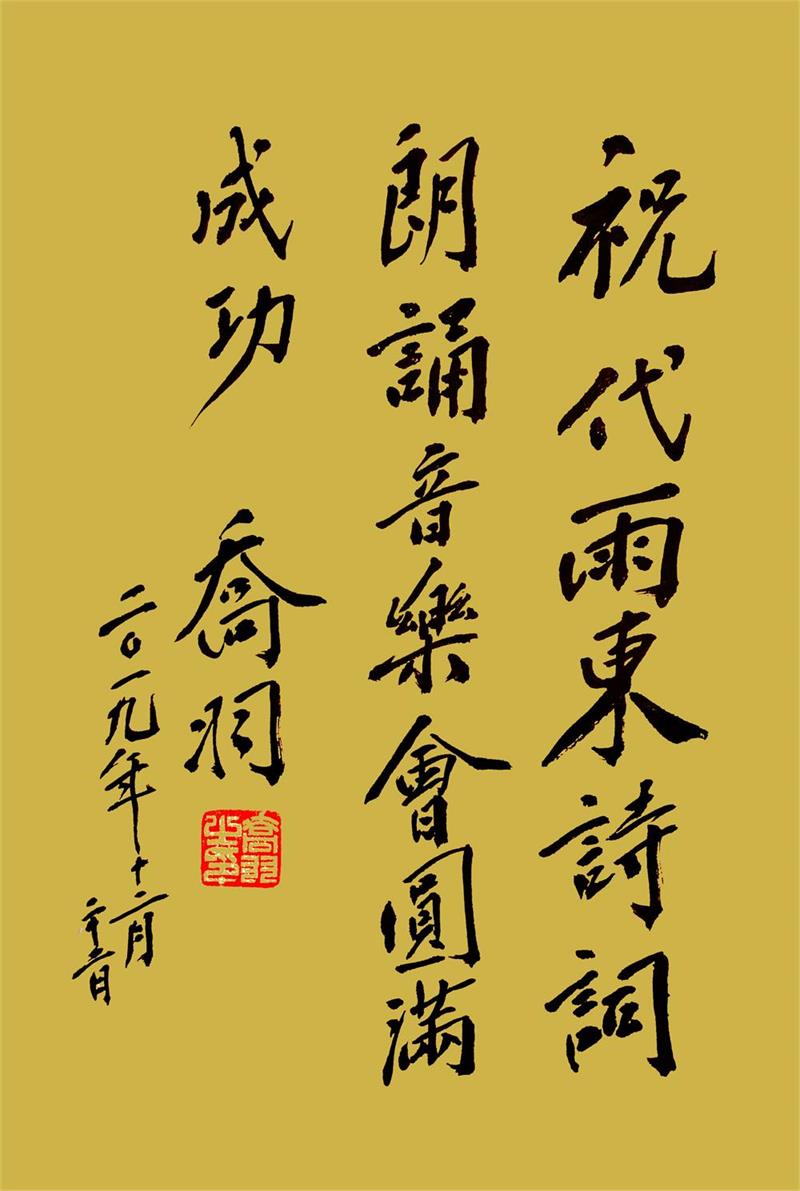 祝代雨東詩詞
朗誦音樂會圓滿
成功
喬羽
二〇一九年十二月